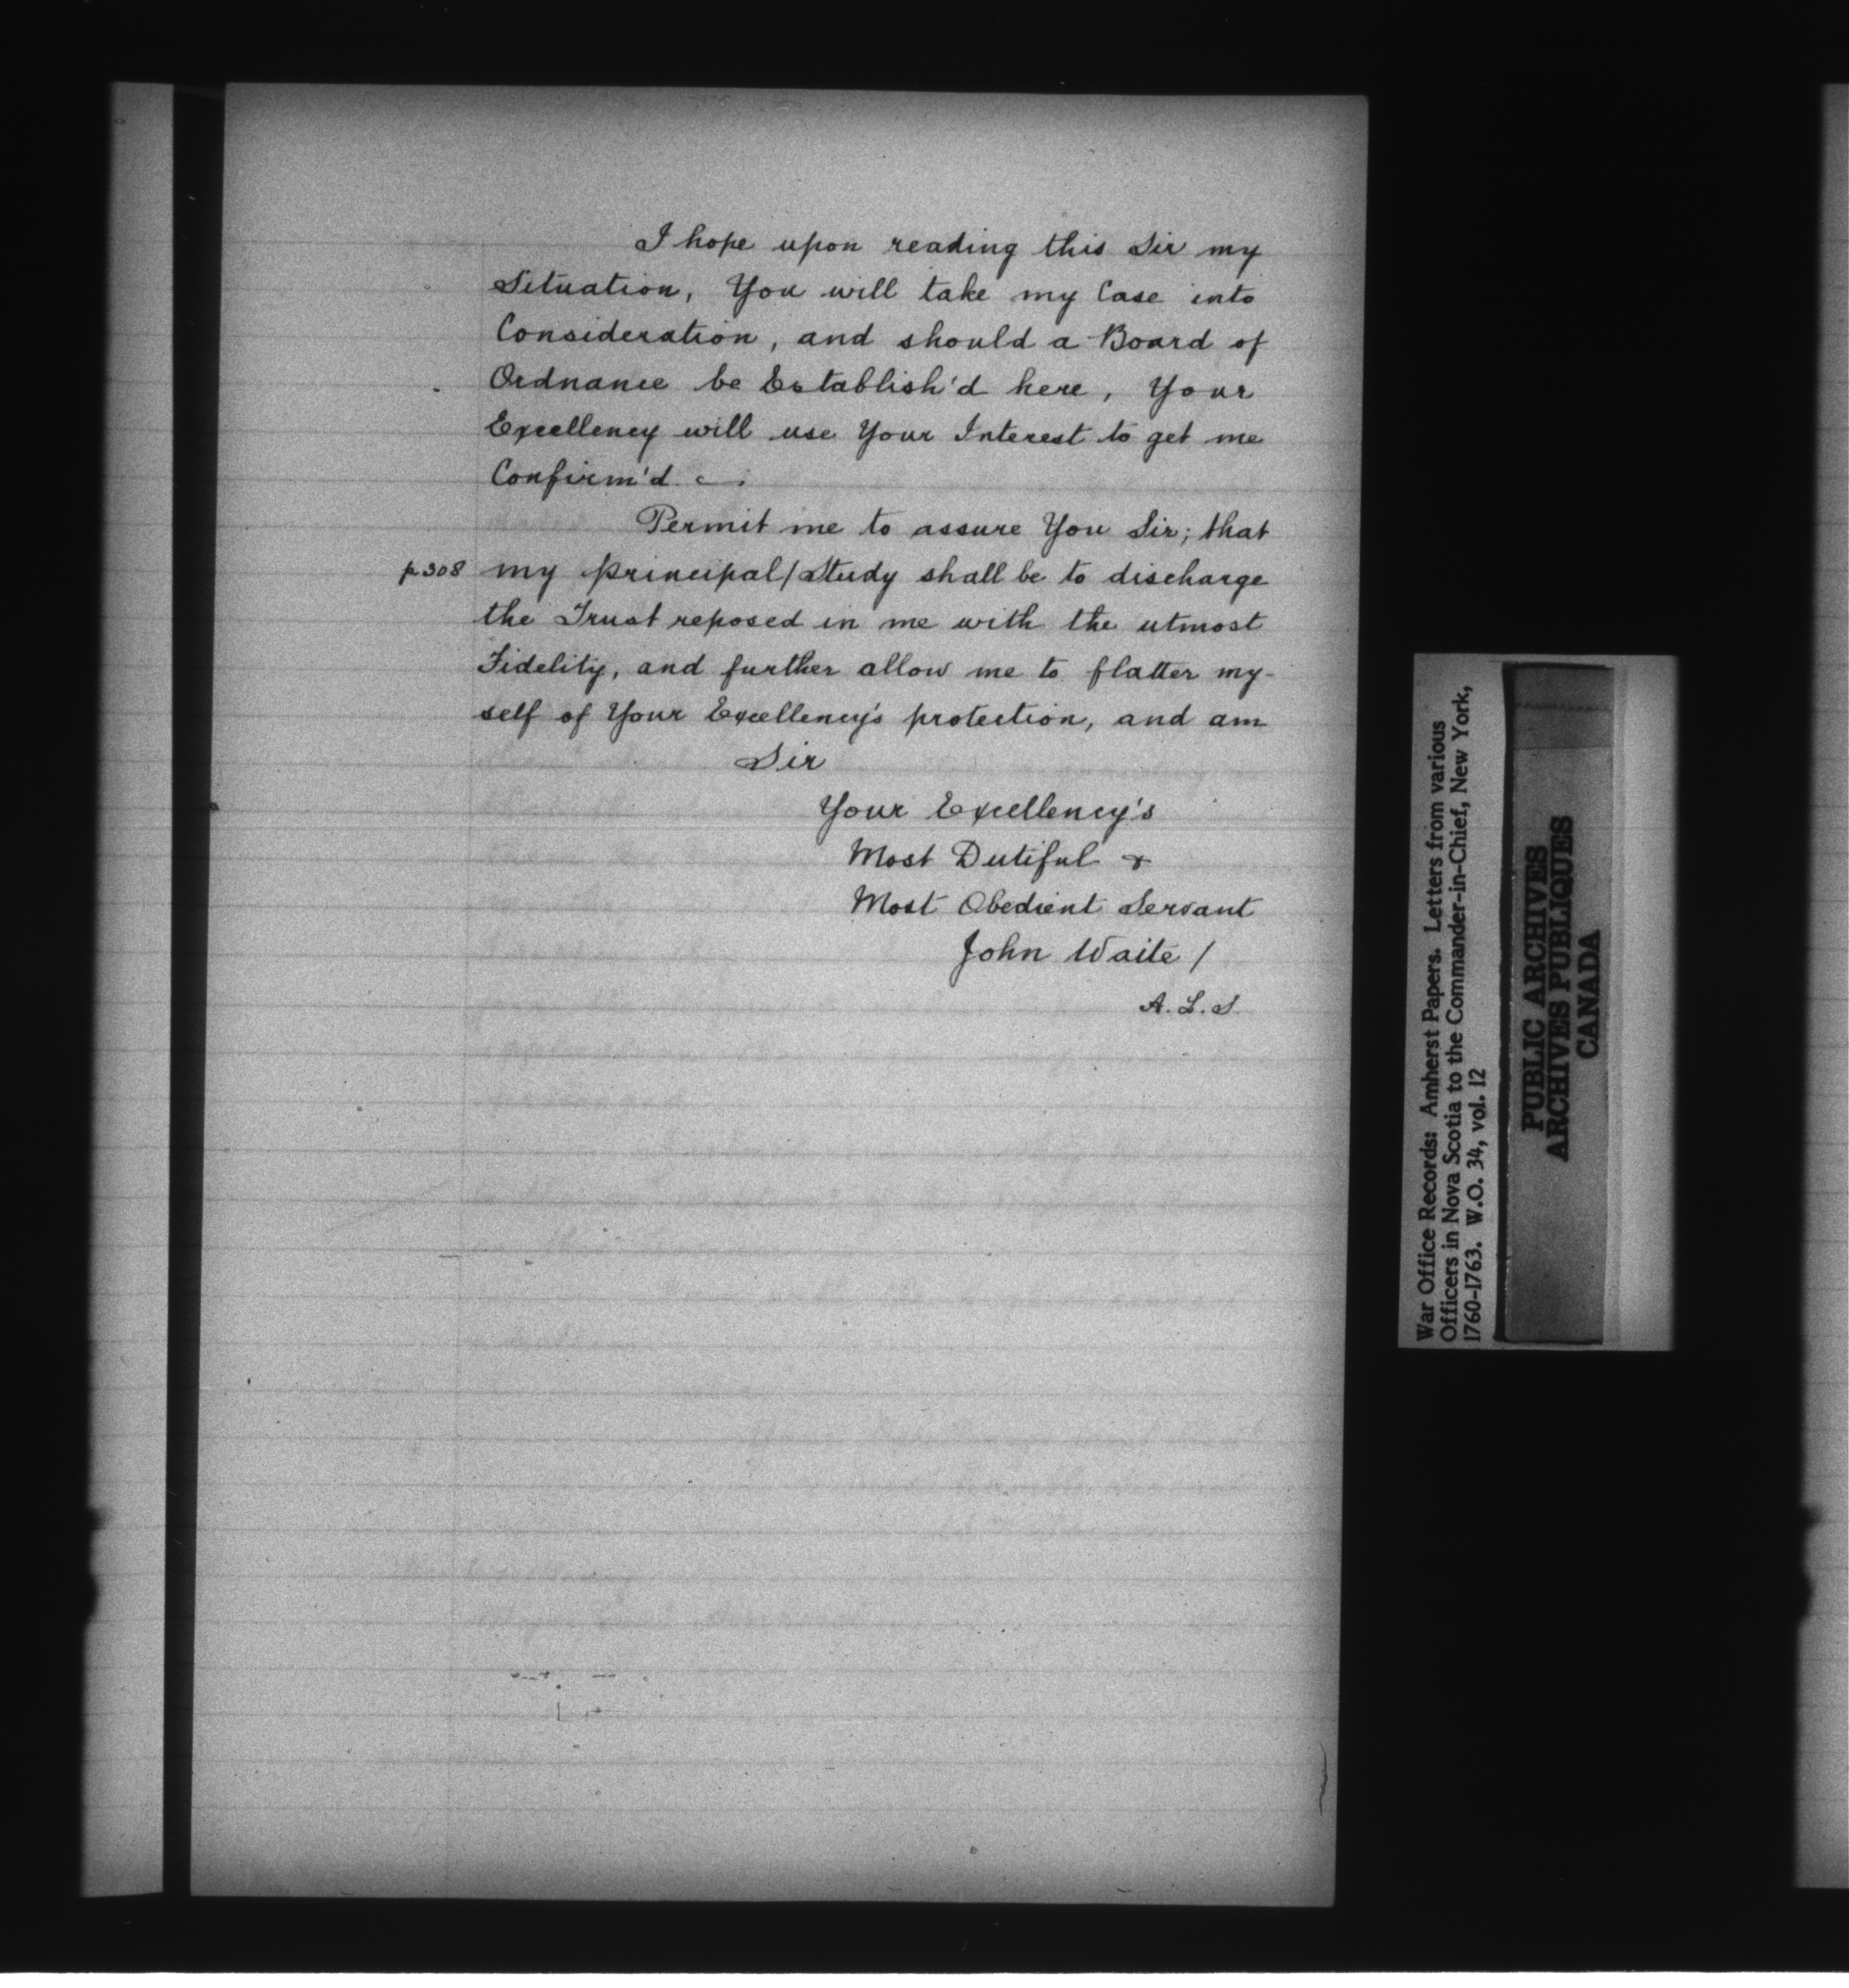 I hope upon reading this Sir my
Situation, You will take my Case into
Consideration, and should a Board of
Ordnance be Establish'd here, Your
Excellency will use Your Interest to get me
Confirm'd
Permit me to assure You Sir; that
p308 my principal/Study shall be to discharge
the Trust reposed in me with the utmost
Fidelity, and further allow me to flatter my-
self of Your Excellency's protection, and am
Sir
Your Excellency's
Most Dutiful &
Most Obedient Servant
John Waite /
A. L. S.
War Office Records: Amherst Papers. Letters from various
Officers in Nova Scotia to the Commander-in-Chief, New York,
1760-1763. W.O. 34, vol. 12
PUBLIC ARCHIVES
ARCHIVES PUBLIQUES
CANADA